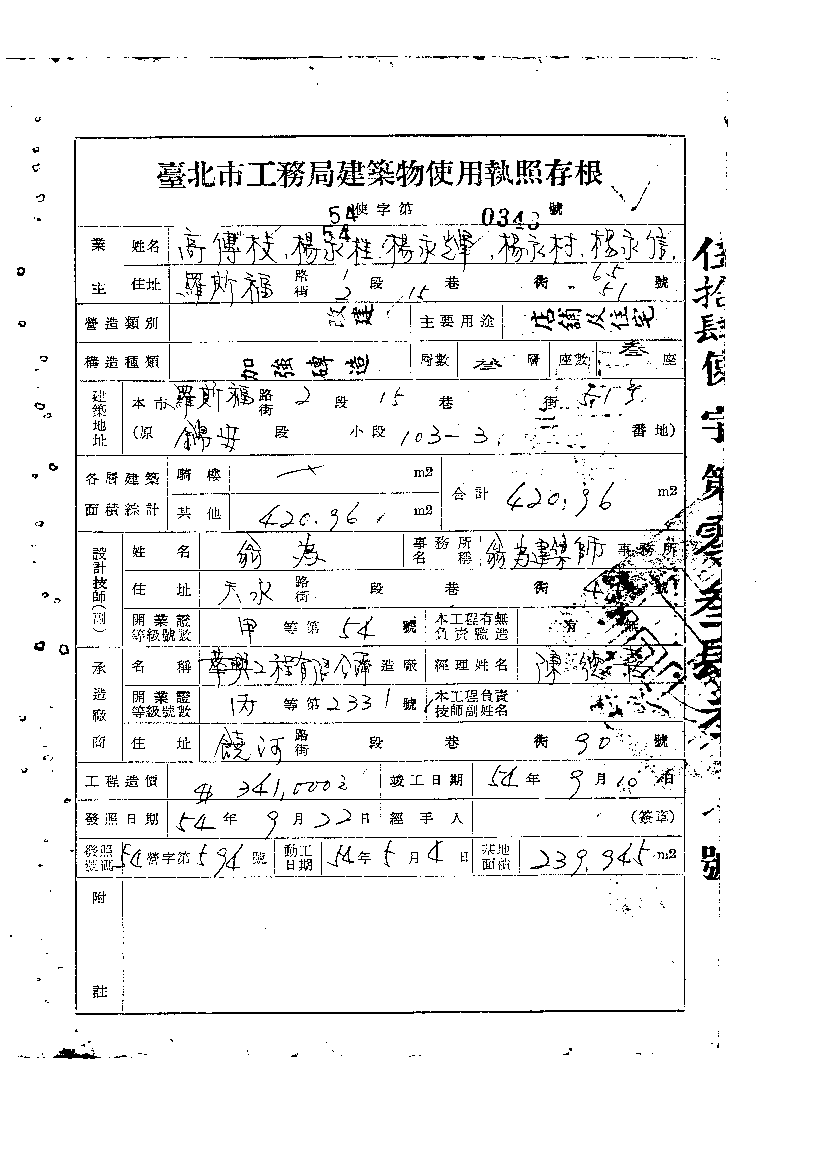 臺北市工務局建築物使用執照存根
54使字第0343號
54
業主 姓名 高傳枝、楊永桂、楊永輝、楊永村、楊永信
住址 羅斯福路街 2段 15巷 街 51號
營造類別 改建 主要用途 店舖及住宅
構造種類 加強磚造 層數 叁層 座數 叁座
建築地址 本市羅斯福路街 2段 15巷 街 51号
(原 錦安段 小段 103-3 番地)
各層建築面積綜計 騎樓 m2 合計 420.96 m2
其他 420.96 m2
設計技師(副) 姓名 事務所名稱 建築師事務所
住址 天水路街 段 巷 街 號
開業證等級號數 甲等第54號 本工程有無負責監造
承造廠商 名稱 華興工程有限公司營造廠 經理姓名 陳德
開業證等級號數 丙等第2331號 本工程負責技師副姓名
住址 饒河路街 段 巷 街 90號
工程造價 $341,000 竣工日期 54年9月10日
發照日期 54年9月22日 經手人 (簽章)
發照號碼 54營字第594號 動工日期 54年5月4日 基地面積 239.945m2
附註
伍拾肆使字第零叁肆叁號